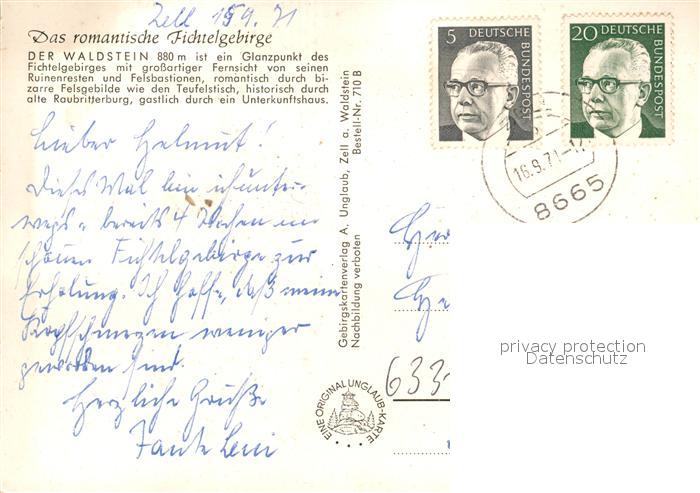 Zell 15.9.71
Das romantische Fichtelgebirge
DER WALDSTEIN 880 m ist ein Glanzpunkt des
Fichtelgebirges mit großartiger Fernsicht von seinen
Ruinenresten und Felsbastionen, romantisch durch bi-
zarre Felsgebilde wie den Teufelstisch, historisch durch
alte Raubritterburg, gastlich durch ein Unterkunftshaus.
Lieber Helmut!
Dieses Mal bin ich unter-
wegs u. bereits 4 Wochen im
schönen Fichtelgebirge zur
Erholung. Ich hoffe, daß meine
Kopfschmerzen weniger
geworden sind.
Herzliche Grüße
Tante Leni
Gebirgskartenverlag A. Unglaub, Zell a. Waldstein
Nachbildung verboten Bestell-Nr. 710 B
EINE ORIGINAL UNGLAUB-KARTE
5 DEUTSCHE BUNDESPOST
20 DEUTSCHE BUNDESPOST
16.9.71-17
8665
633
privacy protection
Datenschutz